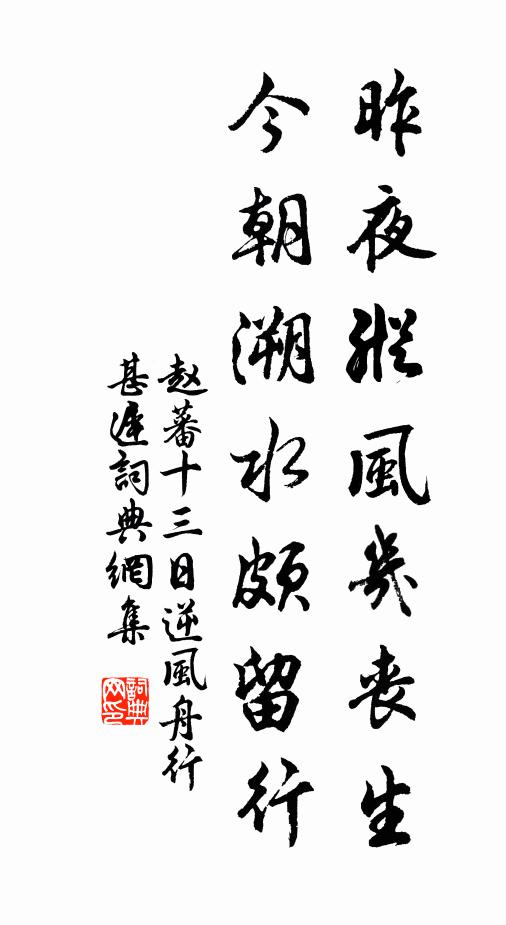 昨夜縱風幾喪生
今朝溯水頗留行
赵蕃十三日逆風舟行
甚遲詞典網集
詞典
网印